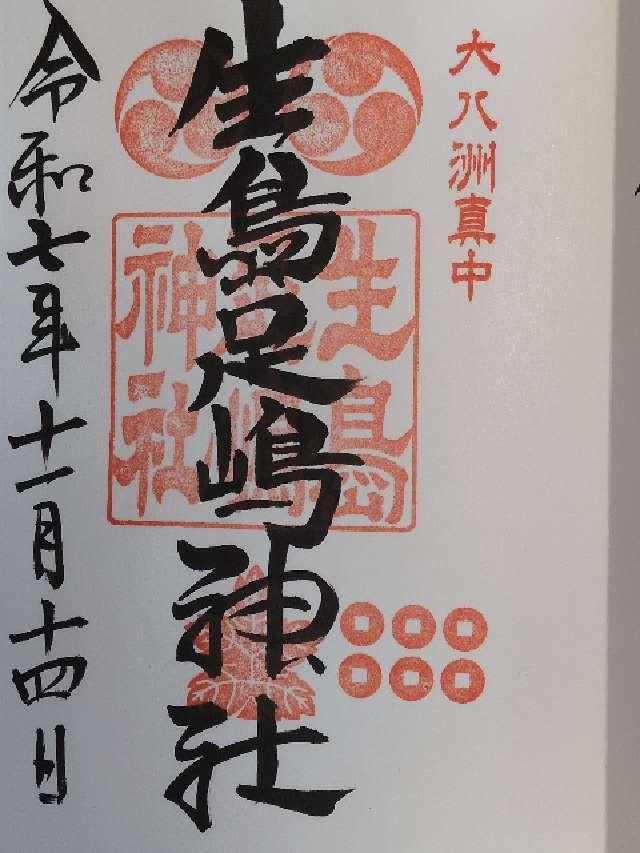 大八洲真中
生島足嶋神社
生島足嶋神社
令和七年十一月十四日